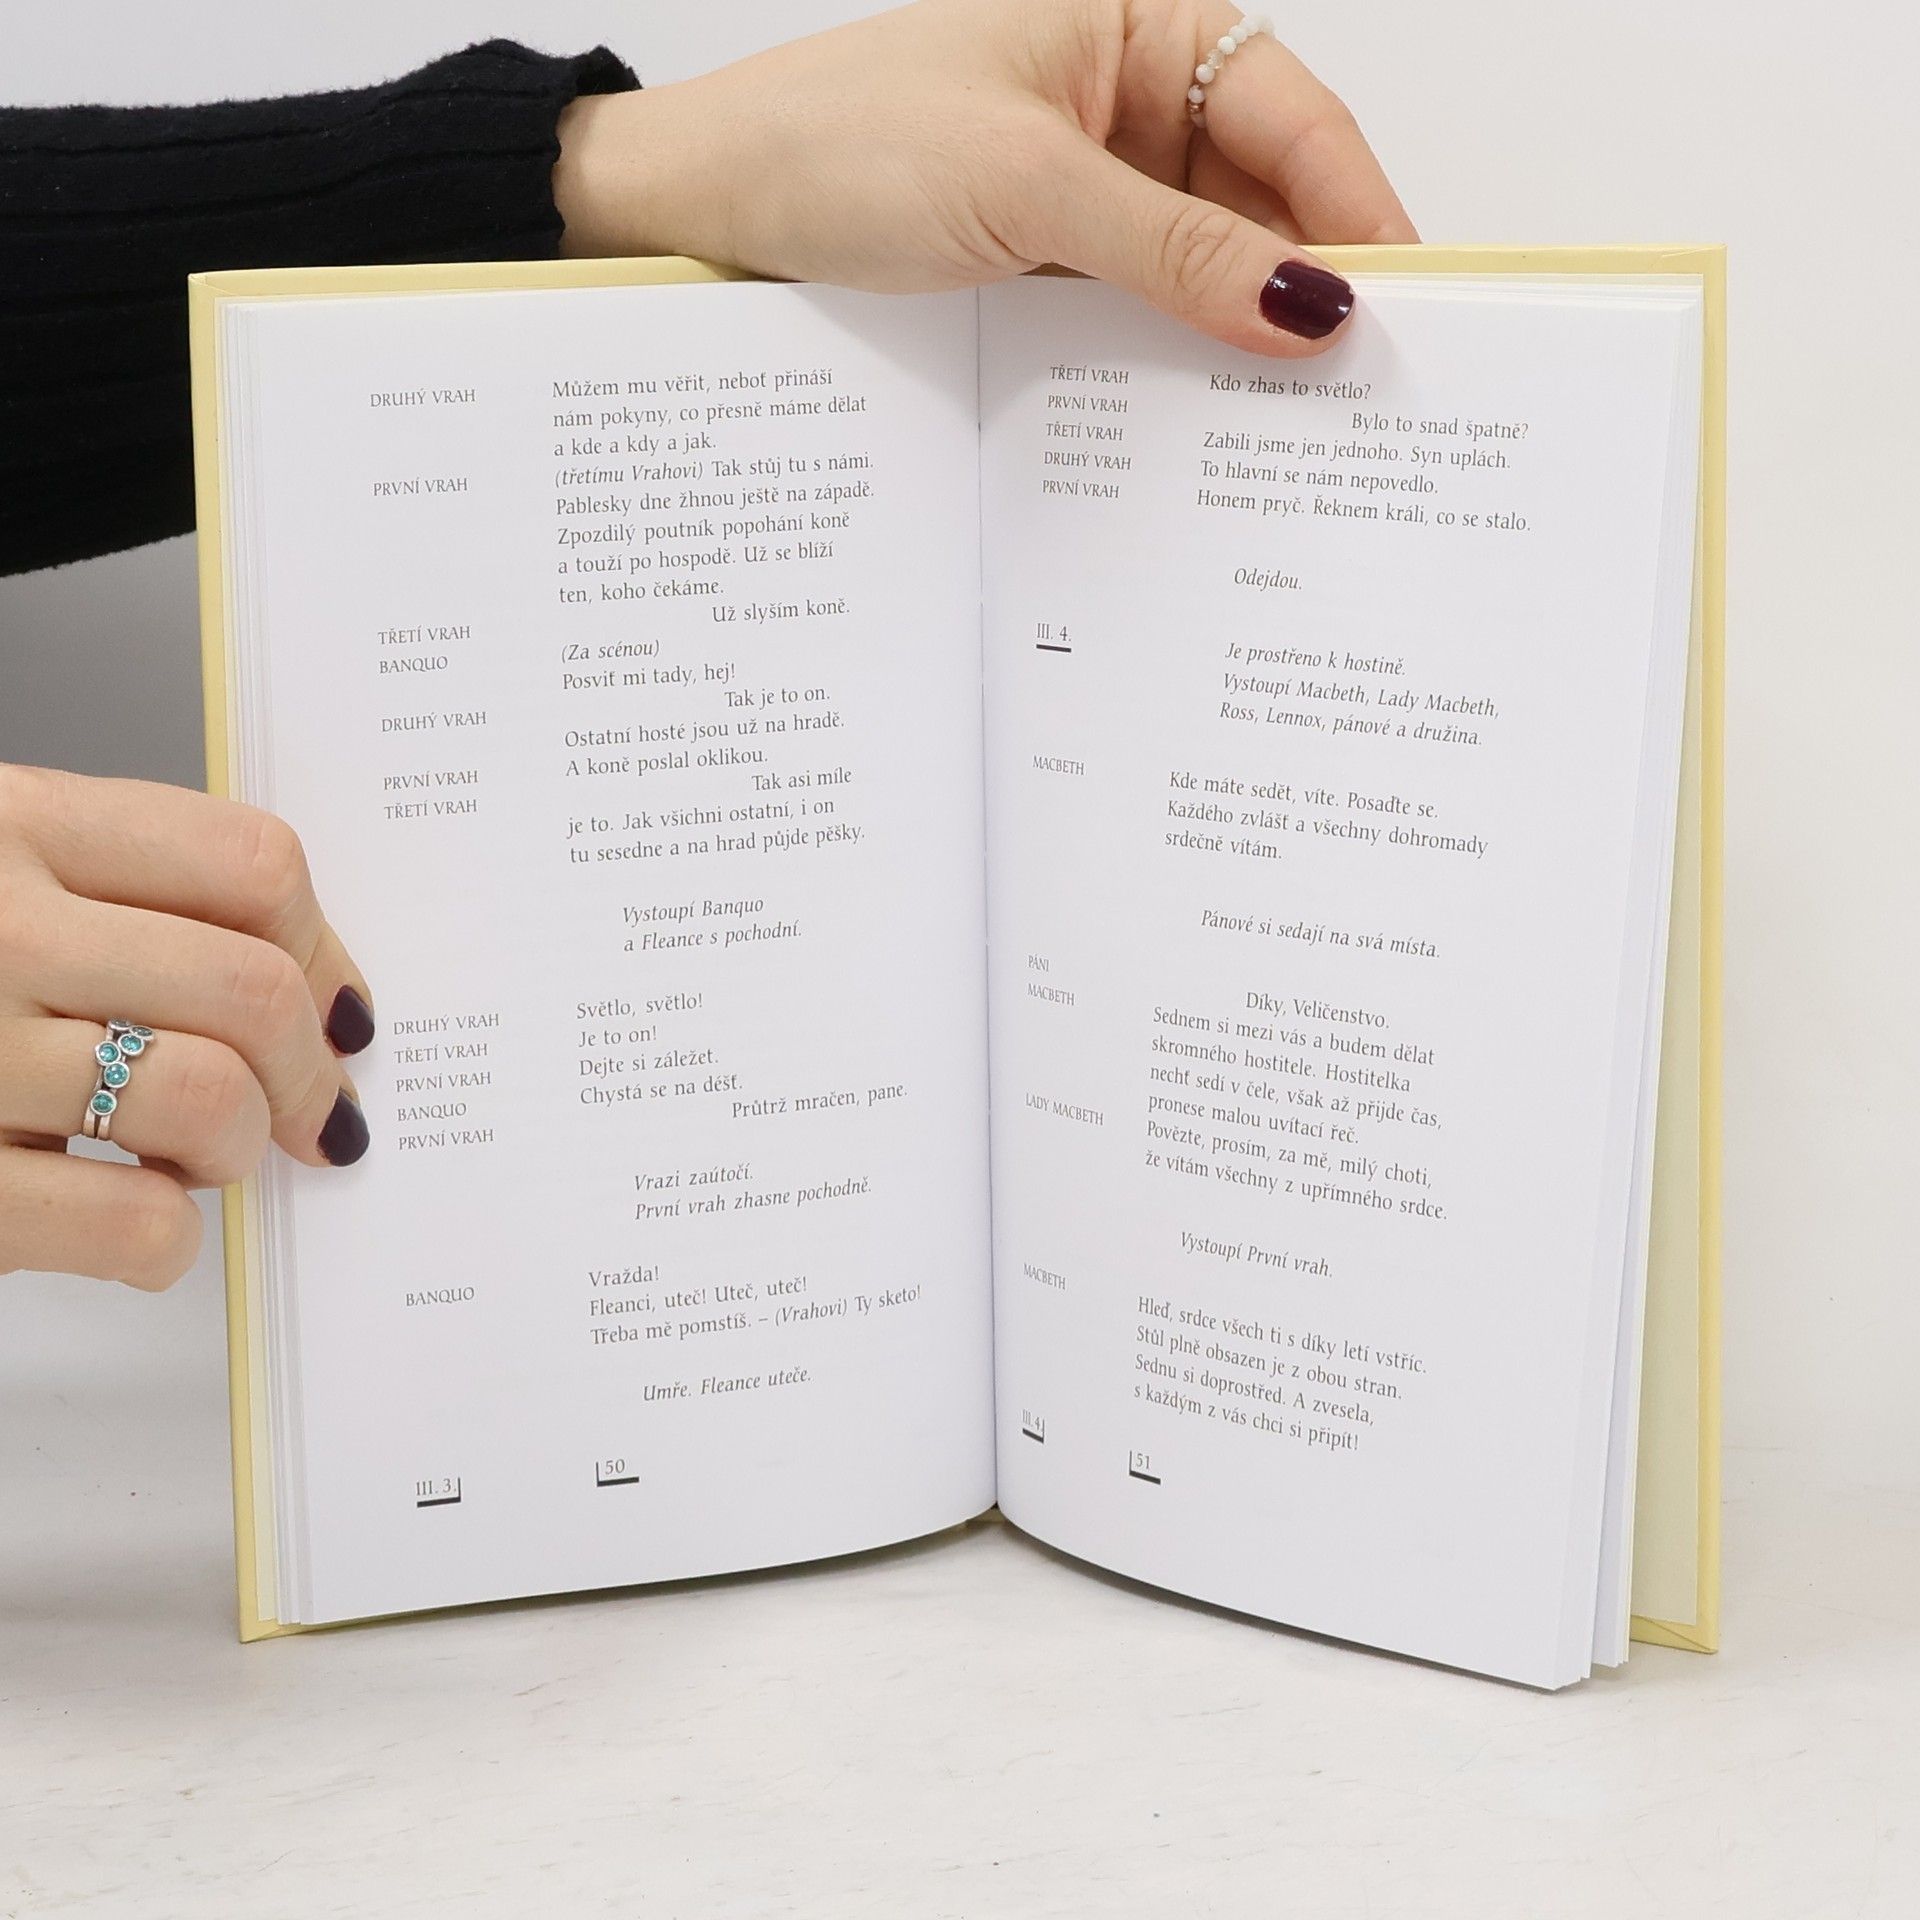 DRUHÝ VRAH Můžem mu věřit, neboť přináší
nám pokyny, co přesně máme dělat
a kde a kdy a jak.
PRVNÍ VRAH (třetímu Vrahovi) Tak stůj tu s námi.
Pablesky dne žhnou ještě na západě.
Zpozdilý poutník popohání koně
a touží po hospodě. Už se blíží
ten, koho čekáme.
TŘETÍ VRAH Už slyším koně.
BANQUO (Za scénou)
Posviť mi tady, hej!
DRUHÝ VRAH Tak je to on.
Ostatní hosté jsou už na hradě.
PRVNÍ VRAH A koně poslal oklikou.
TŘETÍ VRAH Tak asi míle
je to. Jak všichni ostatní, i on
tu sesedne a na hrad půjde pěšky.
Vystoupí Banquo
a Fleance s pochodní.
DRUHÝ VRAH Světlo, světlo!
TŘETÍ VRAH Je to on!
PRVNÍ VRAH Dejte si záležet.
BANQUO Chystá se na déšť.
PRVNÍ VRAH Průtrž mračen, pane.
Vrazi zaútočí.
První vrah zhasne pochodně.
BANQUO Vražda!
Fleanci, uteč! Uteč, uteč!
Třeba mě pomstíš. – (Vrahovi) Ty sketo!
Umře. Fleance uteče.
III. 3. 50
TŘETÍ VRAH Kdo zhas to světlo?
PRVNÍ VRAH Bylo to snad špatně?
TŘETÍ VRAH Zabili jsme jen jednoho. Syn uplách.
DRUHÝ VRAH To hlavní se nám nepovedlo.
PRVNÍ VRAH Honem pryč. Řeknem králi, co se stalo.
Odejdou.
III. 4.
Je prostřeno k hostině.
Vystoupí Macbeth, Lady Macbeth,
Ross, Lennox, pánové a družina.
MACBETH Kde máte sedět, víte. Posaďte se.
Každého zvlášť a všechny dohromady
srdečně vítám.
Pánové si sedají na svá místa.
PÁNI Díky, Veličenstvo.
MACBETH Sednem si mezi vás a budem dělat
skromného hostitele. Hostitelka
nechť sedí v čele, však až přijde čas,
pronese malou uvítací řeč.
LADY MACBETH Povězte, prosím, za mě, milý choti,
že vítám všechny z upřímného srdce.
Vystoupí První vrah.
MACBETH Hleď, srdce všech ti s díky letí vstříc.
Stůl plně obsazen je z obou stran.
Sednu si doprostřed. A zvesela,
s každým z vás chci si připít!
III. 4. 51